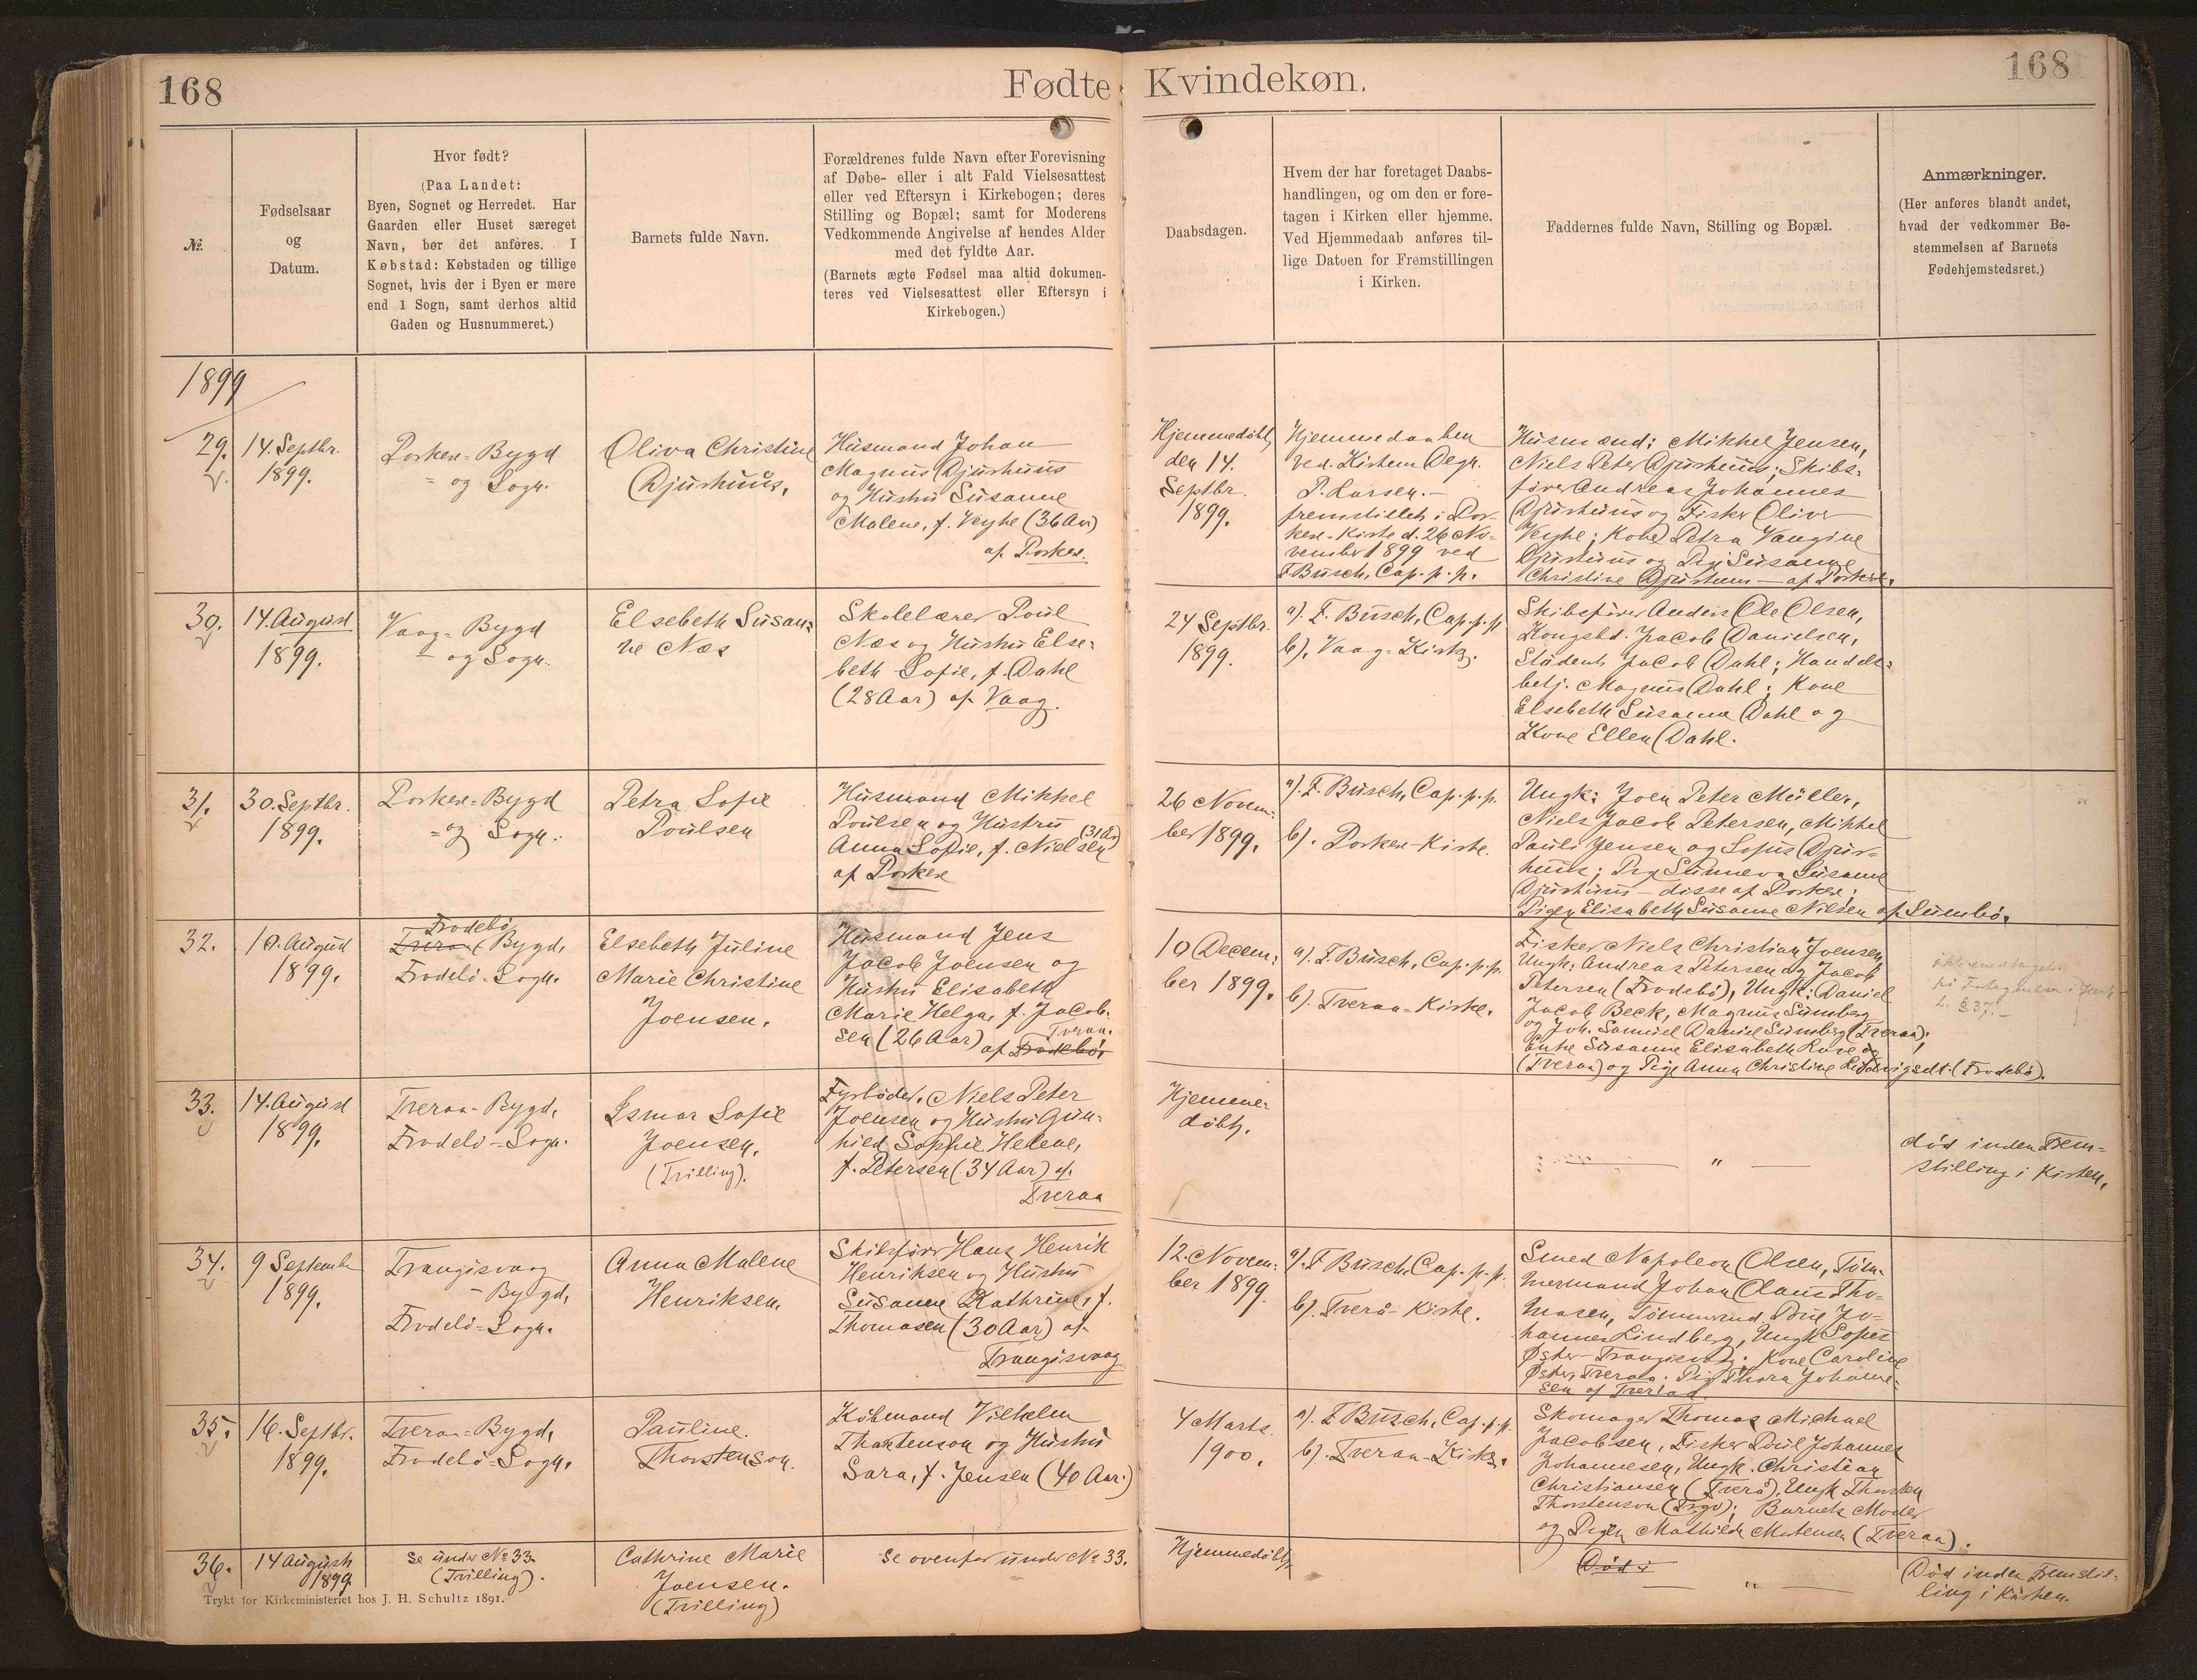 168
Fødte
Kvindekøn.
168
№.
Fødselsaar
og
Datum.
Hvor født?
(Paa Landet:
Byen, Sognet og Herredet. Har
Gaarden eller Huset særeget
Navn, bør det anføres. I
Købstad: Købstaden og tillige
Sognet, hvis der i Byen er mere
end 1 Sogn, samt derhos altid
Gaden og Husnummeret.)
Barnets fulde Navn.
Forældrenes fulde Navn efter Forevisning
af Døbe- eller i alt Fald Vielsesattest
eller ved Eftersyn i Kirkebogen; deres
Stilling og Bopæl; samt for Moderens
Vedkommende Angivelse af hendes Alder
med det fyldte Aar.
(Barnets ægte Fødsel maa altid dokumen-
teres ved Vielsesattest eller Eftersyn i
Kirkebogen.)
Daabsdagen.
Hvem der har foretaget Daabs-
handlingen, og om den er fore-
tagen i Kirken eller hjemme.
Ved Hjemmedaab anføres til-
lige Datoen for Fremstillingen
i Kirken.
Faddernes fulde Navn, Stilling og Bopæl.
Anmærkninger.
(Her anføres blandt andet,
hvad der vedkommer Be-
stemmelsen af Barnets
Fødehjemstedsret.)
1899
29.
14. Septbr.
1899.
Porkere-Bygd
- og Sogn.
Oliva Christine
Djurhuus.
Husmand Johan
Magnus Djurhuus
og Hustru Susanne
Malene, f. Veyhe (36 Aar)
af Porkere.
Hjemmedøbt
den 14.
Septbr.
1899.
Hjemmedaaben
ved Kirkens Degn
P. Larsen.-
fremstillet i Por-
kere-Kirke d. 26 No-
vember 1899 ved
F. Busch, Cap. p. p.
Husmænd: Mikkel Jensen,
Niels Peter Djurhuus; Skibs-
fører Andreas Johannes
Djurhuus og Fisker Oliver
Veyhe; Kone Petra Vangine
Djurhuus og Pige Susanne
Christine Djurhuus - af Porkere.
30.
14. August
1899.
Vaag-Bygd
- og Sogn.
Elsebeth Susan-
ne Næs
Skolelærer Poul
Næs og Hustru Else-
beth Sofie, f. Dahl
(28 Aar) af Vaag.
24 Septbr.
1899.
a). F. Busch, Cap. p. p.
b). Vaag-Kirke.
Skibsfører Anders Ole Olsen,
Kongsbd. Jacob Danielsen,
Student Jacob Dahl; Handels-
betj. Magnus Dahl; Kone
Elsebeth Susanna Dahl og
Kone Ellen Dahl.
31.
30. Septbr.
1899.
Porkere-Bygd
- og Sogn.
Petra Sofie
Poulsen
Husmand Mikkel
Poulsen og Hustru
Anna Sofie, f. Nielsen (31 Aar)
af Porkere
26 Novem-
ber 1899.
a). F. Busch, Cap. p. p.
b). Porkere-Kirke.
Ungk: Joen Peter Müller,
Niels Jacob Petersen, Mikkel
Pauli Jensen og Sofus Djur-
huus; Pige Sunneva Susanne
Djurhuus - disse af Porkere;
Pigen Elisabeth Susanne Nilsen af Sumbø.
32.
10. August
1899.
Frodebø
Tveraa Bygd,
Frodebø-Sogn.
Elsebeth Juline
Marie Christine
Joensen.
Husmand Jens
Jacob Joensen og
Hustru Elisabeth
Marie Helga, f. Jacob-
sen (26 Aar) af Frodebø. Tveraa.
10 Decem-
ber 1899.
a). F. Busch, Cap. p. p.
b). Tveraa-Kirke.
Fisker Niels Christian Joensen,
Ungk: Andreas Petersen og Jacob
Petersen (Frodebø), Ungk: Daniel
Jacob Beck, Magnus Sumberg
og Joh. Samuel Daniel Sumberg (Tveraa);
Enke Susanne Elisabeth
(Tveraa) og Pige Anna Christine (Frodebø).
§ 37.-
33.
14. August
1899.
Tveraa-Bygd,
Frodebø-Sogn.
Ismar Sofie
Joensen.
(Trilling).
Fyrbøder Niels Peter
Joensen og Hustru Gun-
hild Sophie Helene,
f. Petersen (34 Aar) af
Tveraa
Hjemme-
døbt.
"
død inden Frem-
stilling i Kirken.
34.
9 September
1899.
Trangisvaag
- Bygd,
Frodebø-Sogn.
Anna Malene
Henriksen.
Skibsfører Hans Henrik
Henriksen og Hustru
Susanne Kathrine, f.
Thomasen (30 Aar) af
Trangisvaag
12. Novem-
ber 1899.
a). F. Busch, Cap. p. p.
b). Tverå-Kirke.
Smed Napoleon Olsen, Tøm-
mermand Johan Claus Tho-
masen, Tømmermd. Poul Jo-
hannes Lindberg, Ungk Sofus
Øster-Trangisvaag; Kone Caroline
Øster, Tveraa; Pige Thora Johanne-
sen af Tveraa.
35.
16. Septbr.
1899.
Tveraa-Bygd,
Frodebø-Sogn.
Pauline
Thorstenson.
Købmand Vilhelm
Thorstenson og Hustru
Sara, f. Jensen (40 Aar.)
4 Marts
1900.
a). F. Busch, Cap. p. p.
b). Tveraa-Kirke.
Skomager Thomas Michael
Jacobsen, Fisker Poul Johannes
Johannesen, Ungk. Christian
Christiansen (Tverå), Ungk Thorsten
Thorstenson; Barnets Moder
og Pigen Mathilde Mortensen (Tveraa).
36.
14 August
1899.
Se under No 33.
(Trilling).
Cathrine Marie
Joensen.
(Trilling)
Se ovenfor under No 33.
Hjemmedøbt.
Død i
"
Død inden Fremstil-
ling i Kirken.
Trykt for Kirkeministeriet hos J. H. Schultz 1891.